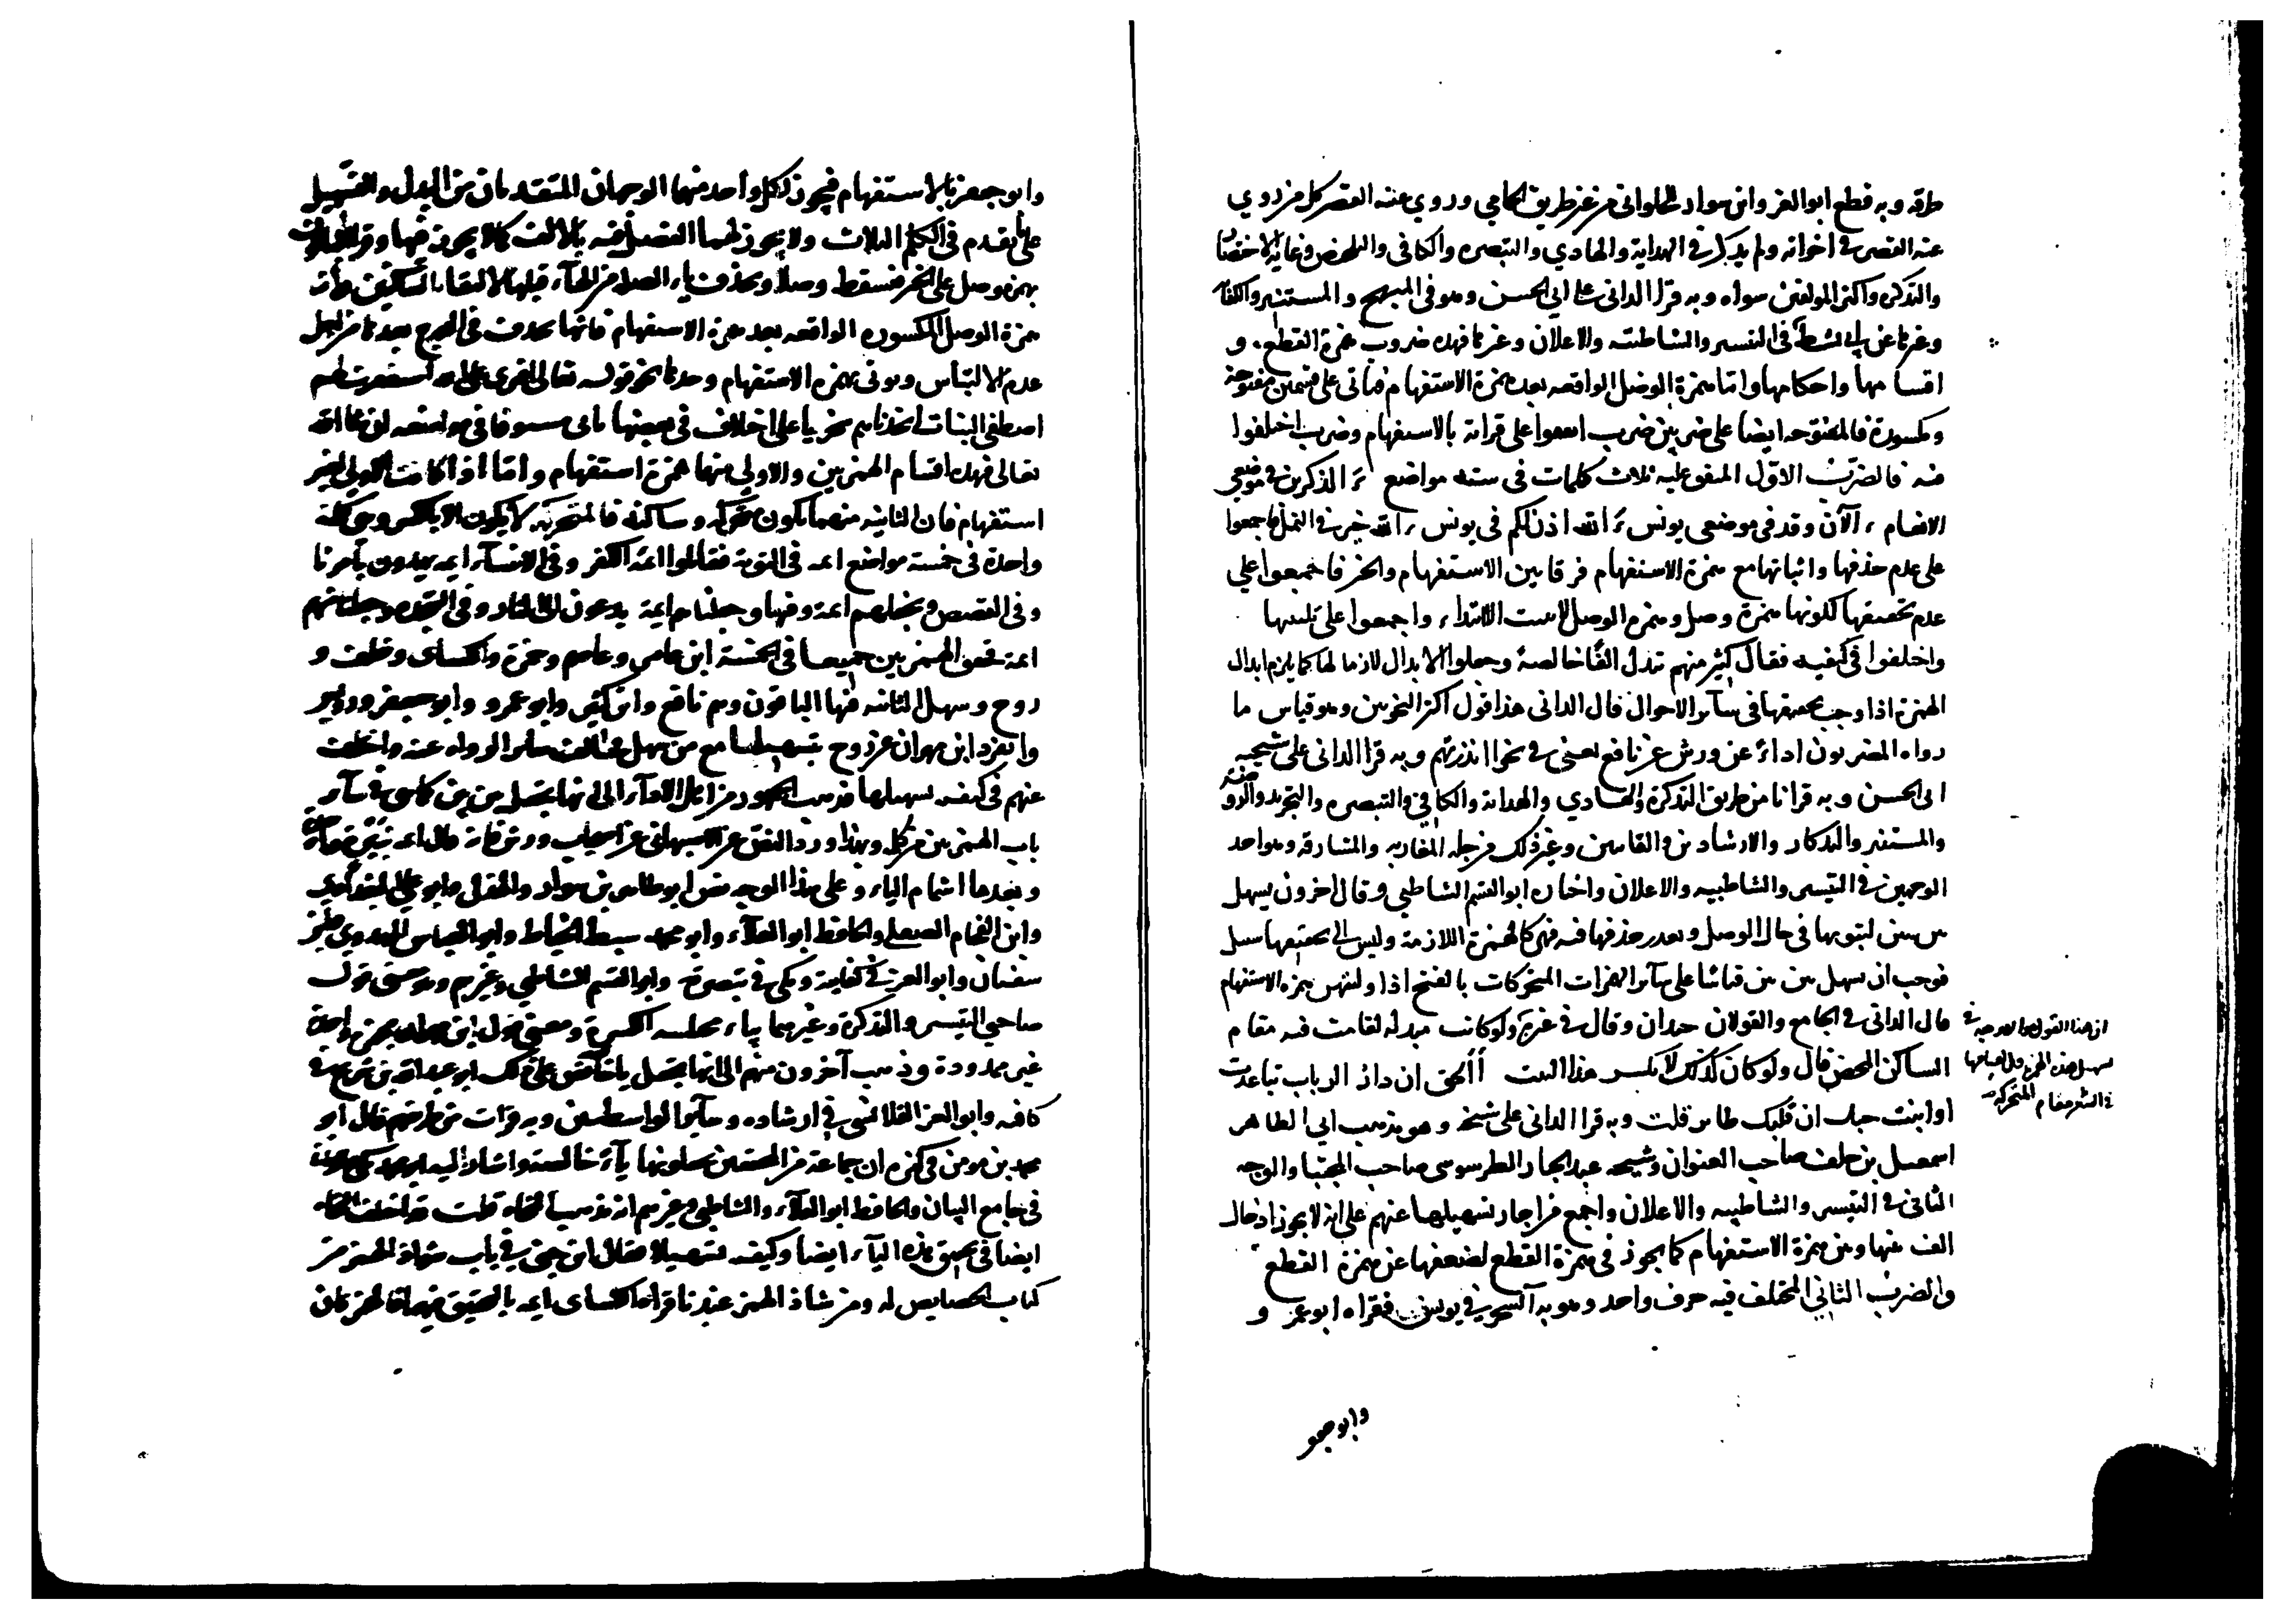 طرقه وبه قطع ابو العز وابن سوار للحلواني من غير طريق الحمامي وروي عنه القصر كل من روي
عنه القصر في اخواته ولم يذكر في الهداية والهادي والتبصره والكافي والتلخيص وغاية الاختصار
والتذكره واكثر المولفين سواه وبه قرا الداني على ابي الحسن وهو في المبهج والمستنير والكفاية
وغيرها عن ابي نشيط وفي التيسير والشاطبية والاعلان وغيرها فهذه ضروب همزة القطع و
اقسامها واحكامها واما همزة الوصل الواقعه بعد همزة الاستفهام فتاتي على قسمين مفتوحة
ومكسورة فالمفتوحه ايضا على ضربين ضرب اتفقوا على قراته بالاستفهام وضرب اختلفوا
فيه فالضرب الاول المتفق عليه ثلاث كلمات في سته مواضع ءآلذكرين في موضعي
الانعام ءآلآن وقد في موضعي يونس ءآلله اذن لكم في يونس ءآلله خير في النمل فاجمعوا
على عدم حذفها واثباتها مع همزة الاستفهام فرقا بين الاستفهام والخبر فاجمعوا علي
عدم تحقيقها لكونها همزة وصل وهمزه الوصل لا تثبت الا ابتداء واجمعوا على تليينها
واختلفوا في كيفيه فقال كثير منهم تبدل الفا خالصة وجعلوا الابدال لازما لها كما يلزم ابدال
الهمزة اذا وجب تخفيفها في سائر الاحوال قال الداني هذا قول اكثر النحويين وهو قياس ما
رواه المصريون اداء عن ورش عن نافع يعني في نحو ا انذرتهم وبه قرا الداني على شيخيه
ابي الحسن وبه قرانا من طريق التذكرة والهادي والهداية والكافي والتبصره والتجريد والروضة
والمستنير والتذكار والارشادين والغايتين وغير ذلك من جله المغاربه والمشارقه وهو احد
الوجهين في التيسير والشاطبيه والاعلان واختاره ابو القسم الشاطبي وقال اخرون تسهل
بين بين لثبوتها في حال الوصل وتعذر حذفها فيه فهي كالهمزة اللازمة وليس الى تحقيقها سبيل
فوجب ان تسهل بين بين قياسا على سائر الهمزات المتحركات بالفتح اذا وليتهن همزه الاستفهام
قال الداني في الجامع والقولان جيدان وقال في غيره ولو كانت مبدله لقامت فيه مقام
الساكن المحض قال ولو كان كذلك لانكسر هذا البيت أألحق ان دار الرباب تباعدت
او انبت حبل ان قلبك طاير قلت وبه قرا الداني على شيخه وهو مذهب ابي الطاهر
اسمعيل بن خلف صاحب العنوان وشيخه عبد الجبار الطرسوسي صاحب المجتبا والوجه
الثاني في التيسير والشاطبيه والاعلان واجمع من اجاز تسهيلها عنهم على انه لا يجوز ادخال
الف بينها وبين همزة الاستفهام كما يجوز في همزة القطع لضعفها عن همزة القطع
والضرب الثاني المختلف فيه حرف واحد وهو به آلسحر في يونس فقراه ابو عمر و
ان هذا القول هو الاوجه في
تسهيل هذه الهمزة قال لقيامها
في الشعر مقام المتحركه
وابو جعفر
وابو جعفر بالاستفهام فيجوز لكل واحد منهما الوجهان المتقدمان من البدل والتسهيل
على ما تقدم في الكلم الثلاث ولا يجوز لهما الفصل فيه بالالف كما لا يجوز فيها وقرا الباقون
بهمزة وصل على الخبر فتسقط وصلا وتحذف ياء الصلة من الهآء قبلها لالتقاء الساكنين واما
همزة الوصل المكسوره الواقعه بعد همزة الاستفهام فانها تحذف في الدرج بعدها من اجل
عدم الالتباس ويوتى بهمزه الاستفهام وحدها نحو قوله تعالى افترى على الله استغفرت لهم
اصطفى البنات اتخذناهم سخريا على اختلاف في بعضها ياتي مستوفا في مواضعه ان شا الله
تعالى فهذه اقسام الهمزتين والاولى منهما همزة استفهام واما اذا كانت الاولى لغير
استفهام فان الثانيه منهما تكون متحركه وساكنه فالمتحركه لا تكون الا بالكسر وهي كلمة
واحدة في خمسة مواضع ائمه في التوبة فقاتلوا ائمة الكفر وفي الانبياء ايمه يهدون بامرنا
وفي القصص ونجعلهم ائمة وفيها وجعلناهم ايمة يدعون الى النار وفي السجده وجعلنا منهم
ائمة فحقق الهمزتين جميعا في الخمسة ابن عامر وعاصم وحمزة والكسائى وخلف و
روح وسهل الثانيه فيها الباقون وهم نافع وابن كثير وابو عمرو وابو جعفر ورويس
وانفرد ابن مهران عن روح بتسهيلها مع من سهل فخالف سائر الرواه عنه واختلف
عنهم في كيفيه تسهيلها فذهب الجمهور من اهل الاداء الى انها تجعل بين بين كما هي في سآئر
باب الهمزتين من كلمه وبهذا ورد النص عن الاصبهاني عن اصحاب ورش فانه قال ائمه بنبرة واحدة
وبعدها اشمام الياء وعلى هذا الوجه نص ابو طاهر بن سوار والهذلي وابو علي البغدادي
وابن الفحام الصقلي والحافظ ابو العلاء وابو محمد سبط الخياط وابو العباس المهدوي وابن
سفيان وابو العز في كفايته ومكي في تبصرته وابو القسم الشاطبي وغيرهم وهو معنى قول
صاحبي التيسير والتذكرة وغيرهما بياء مختلسه الكسرة ومعنى قول ابن مهران بهمزة واحدة
غير ممدودة وذهب آخرون منهم الى انها تجعل ياء خالصة نص على ذلك ابو عبدالله بن شريح في
كافيه وابو العز القلانسي في ارشاده وسآئر الواسطيين وبه قرات من طريقهم قال ابو
محمد بن مومن في كنزه ان جماعة من المحققين يجعلونها يآء خالصة واشار اليه ابو محمد مكي والداني
في جامع البيان والحافظ ابو العلآء والشاطبي وغيرهم انه مذهب النحاه قلت وقد اختلف النحاة
ايضا في تحقيق هذه اليآء ايضا وكيفيه تسهيلها فقال ابن جني في باب شواذ الهمز من
كتاب الخصايص له ومن شاذ الهمز عندنا قراءة الكسائى ايمه بالتحقيق فيهما فالهمزتان